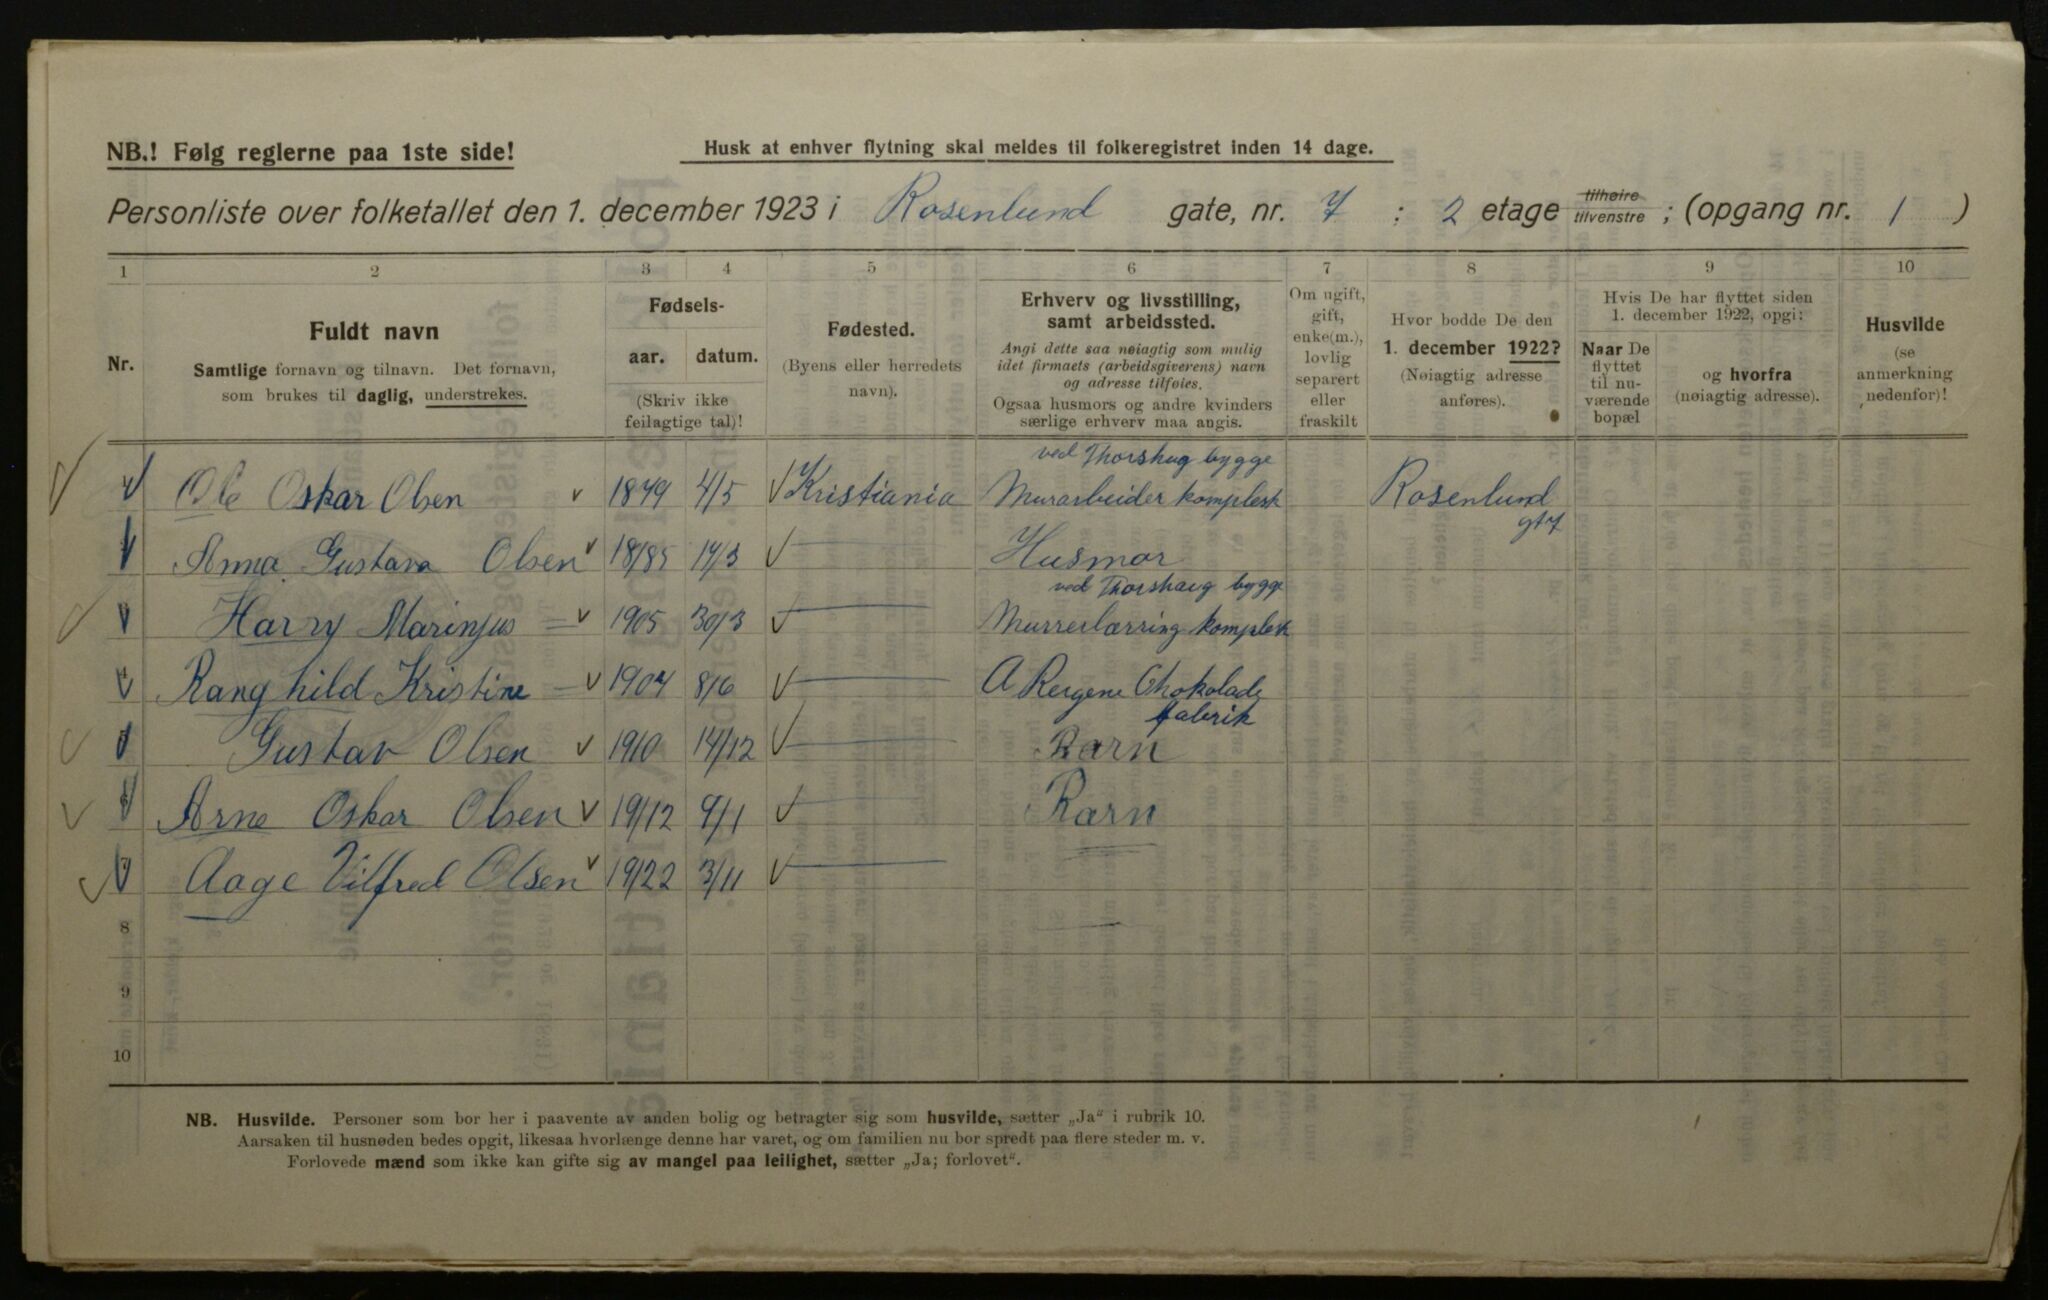 NB.! Følg reglerne paa 1ste side!
Husk at enhver flytning skal meldes til folkeregistret inden 14 dage.
Personliste over folketallet den 1. december 1923 i Rosenlund gate, nr. 7 : 2 etage tilhøire tilvenstre ; (opgang nr. 1 )
1 2 3 4 5 6 7 8 9 10
Nr.
Fuldt navn
Samtlige fornavn og tilnavn. Det fornavn,
som brukes til daglig, understrekes.
Fødsels-
aar. datum.
(Skriv ikke
feilagtige tal)!
Fødested.
(Byens eller herredets
navn).
Erhverv og livsstilling,
samt arbeidssted.
Angi dette saa nøiagtig som mulig
idet firmaets (arbeidsgiverens) navn
og adresse tilføies.
Ogsaa husmors og andre kvinders
særlige erhverv maa angis.
Om ugift,
gift,
enke(m.),
lovlig
separert
eller
fraskilt
Hvor bodde De den
1. december 1922?
(Nøiagtig adresse
anføres).
Hvis De har flyttet siden
1. december 1922, opgi:
Naar De
flyttet
til nu-
værende
bopæl
og hvorfra
(nøiagtig adresse).
Husvilde
(se
anmerkning
nedenfor)!
ved Thorshug bygge
Ole Oskar Olsen 1879 4/5 Kristiania Murarbeider kompleks Rosenlund
gt 7
Anna Gustava Olsen 18/85 14/3 Husmor
ved Thorshaug bygge
Harry Marinjus 1905 30/3 Murrerlærring kompleks
Rang hild Kristine 1904 8/6 A Rergene Chokolade
fabrik
Gustav Olsen 1910 14/12 Barn
Arne Oskar Olsen 19/12 9/1 Barn
Aage Vilfred Olsen 19/22 3/11
8
9
10
NB. Husvilde. Personer som bor her i paavente av anden bolig og betragter sig som husvilde, sætter „Ja“ i rubrik 10.
Aarsaken til husnøden bedes opgit, likesaa hvorlænge denne har varet, og om familien nu bor spredt paa flere steder m. v.
Forlovede mænd som ikke kan gifte sig av mangel paa leilighet, sætter „Ja; forlovet“.